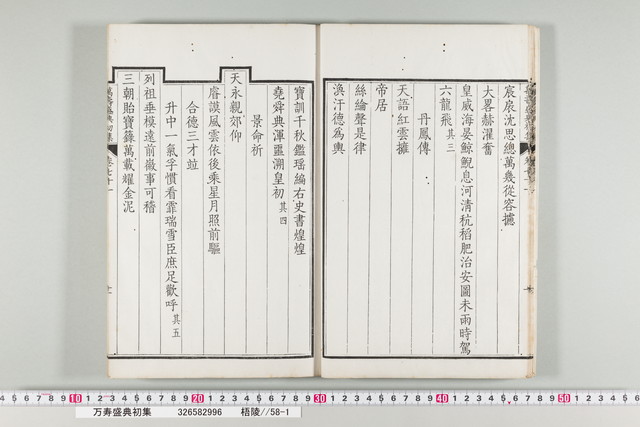 宸扆沈思總萬幾從容攄
大畧赫濯奮
皇威海晏鯨鯢息河清秔稻肥治安圖未雨時駕
六龍飛其三
丹鳳傳
天語紅雲擁
帝居
絲綸聲是律
渙汗德爲輿
寶訓千秋鑑瑶編右史書煌煌
堯舜典渾噩溯皇初其四
景命祈
天永親郊仰
睿謨風雲依後乘星月照前驅
合德三才竝
升中一氣孚慣看霏瑞雪臣庶足歡呼其五
列祖垂模遠前徽事可稽
三朝貽寶籙萬載耀金泥
10 20 30 40 50
万寿盛典初集 326582996 梧陵//58-1